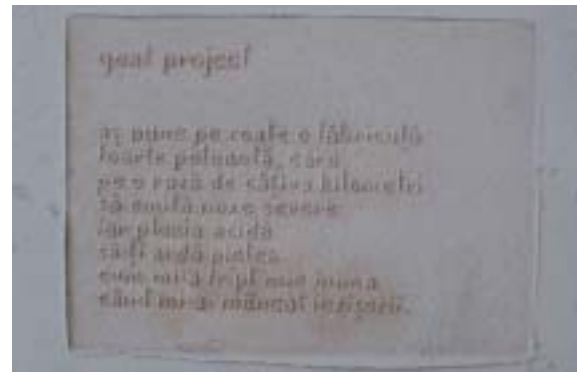 goal project
aș pune pe coate o făbricuță
foarte poluantă, care
pe o rază de câțiva kilometri
să emită noxe severe
iar ploaia acidă
să-ți ardă pielea
cum mi-a mea inima
când mi-ai mâncat